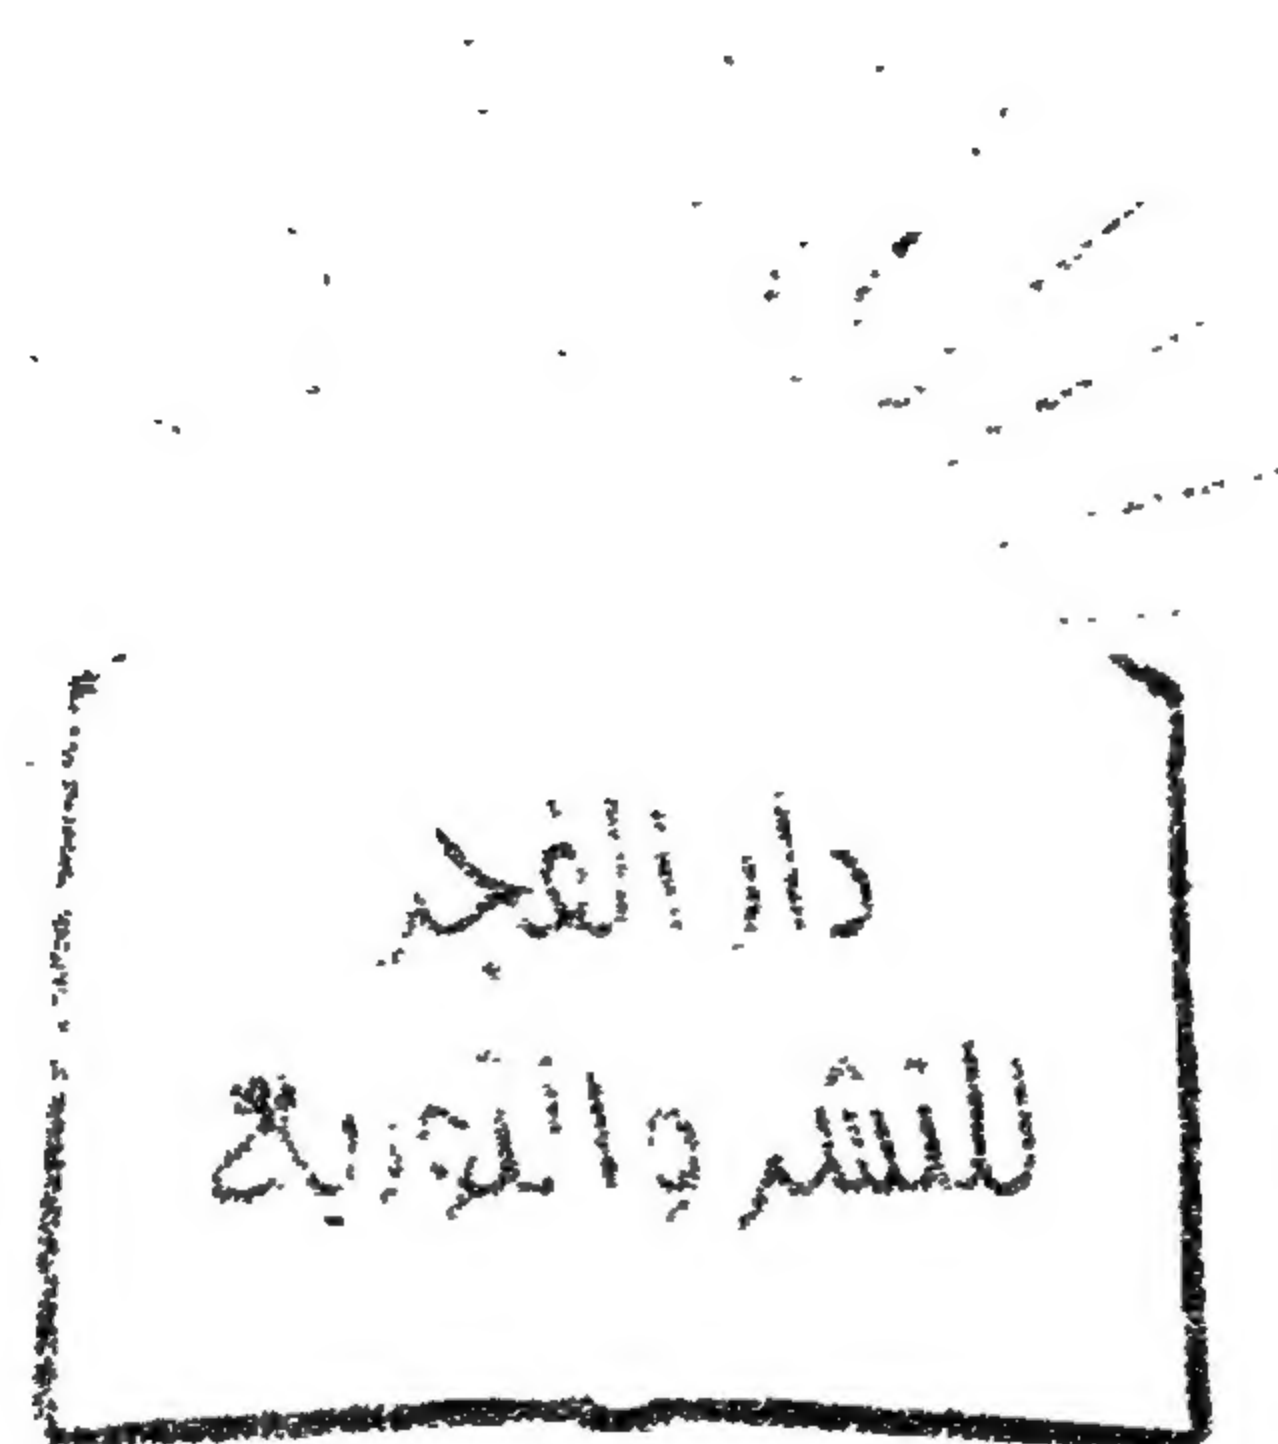 دار الفجر
للنشر والتوزيع